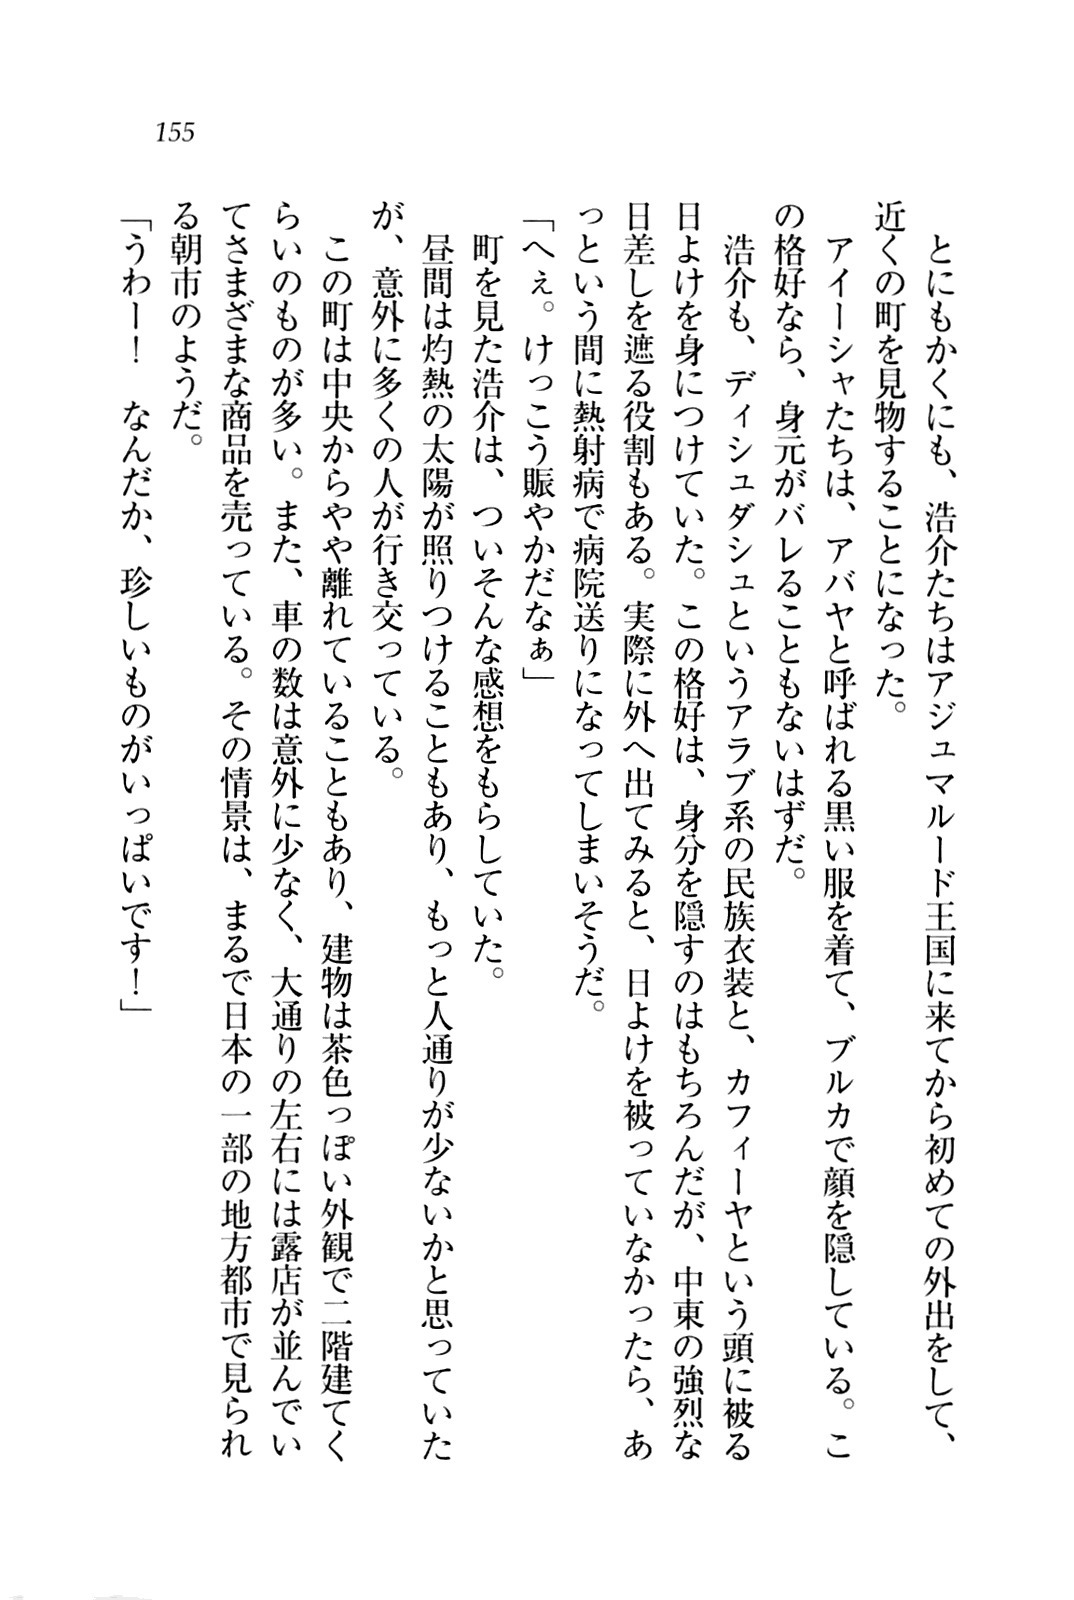 155
　とにもかくにも、浩介たちはアジュマルード王国に来てから初めての外出をして、
近くの町を見物することになった。
　アイーシャたちは、アバヤと呼ばれる黒い服を着て、ブルカで顔を隠している。こ
の格好なら、身元がバレることもないはずだ。
　浩介も、ディシュダシュというアラブ系の民族衣装と、カフィーヤという頭に被る
日よけを身につけていた。この格好は、身分を隠すのはもちろんだが、中東の強烈な
日差しを遮る役割もある。実際に外へ出てみると、日よけを被っていなかったら、あ
っという間に熱射病で病院送りになってしまいそうだ。
「へぇ。けっこう賑やかだなぁ」
　町を見た浩介は、ついそんな感想をもらしていた。
　昼間は灼熱の太陽が照りつけることもあり、もっと人通りが少ないかと思っていた
が、意外に多くの人が行き交っている。
　この町は中央からやや離れていることもあり、建物は茶色っぽい外観で二階建てく
らいのものが多い。また、車の数は意外に少なく、大通りの左右には露店が並んでい
てさまざまな商品を売っている。その情景は、まるで日本の一部の地方都市で見られ
る朝市のようだ。
「うわー！　なんだか、珍しいものがいっぱいです！」